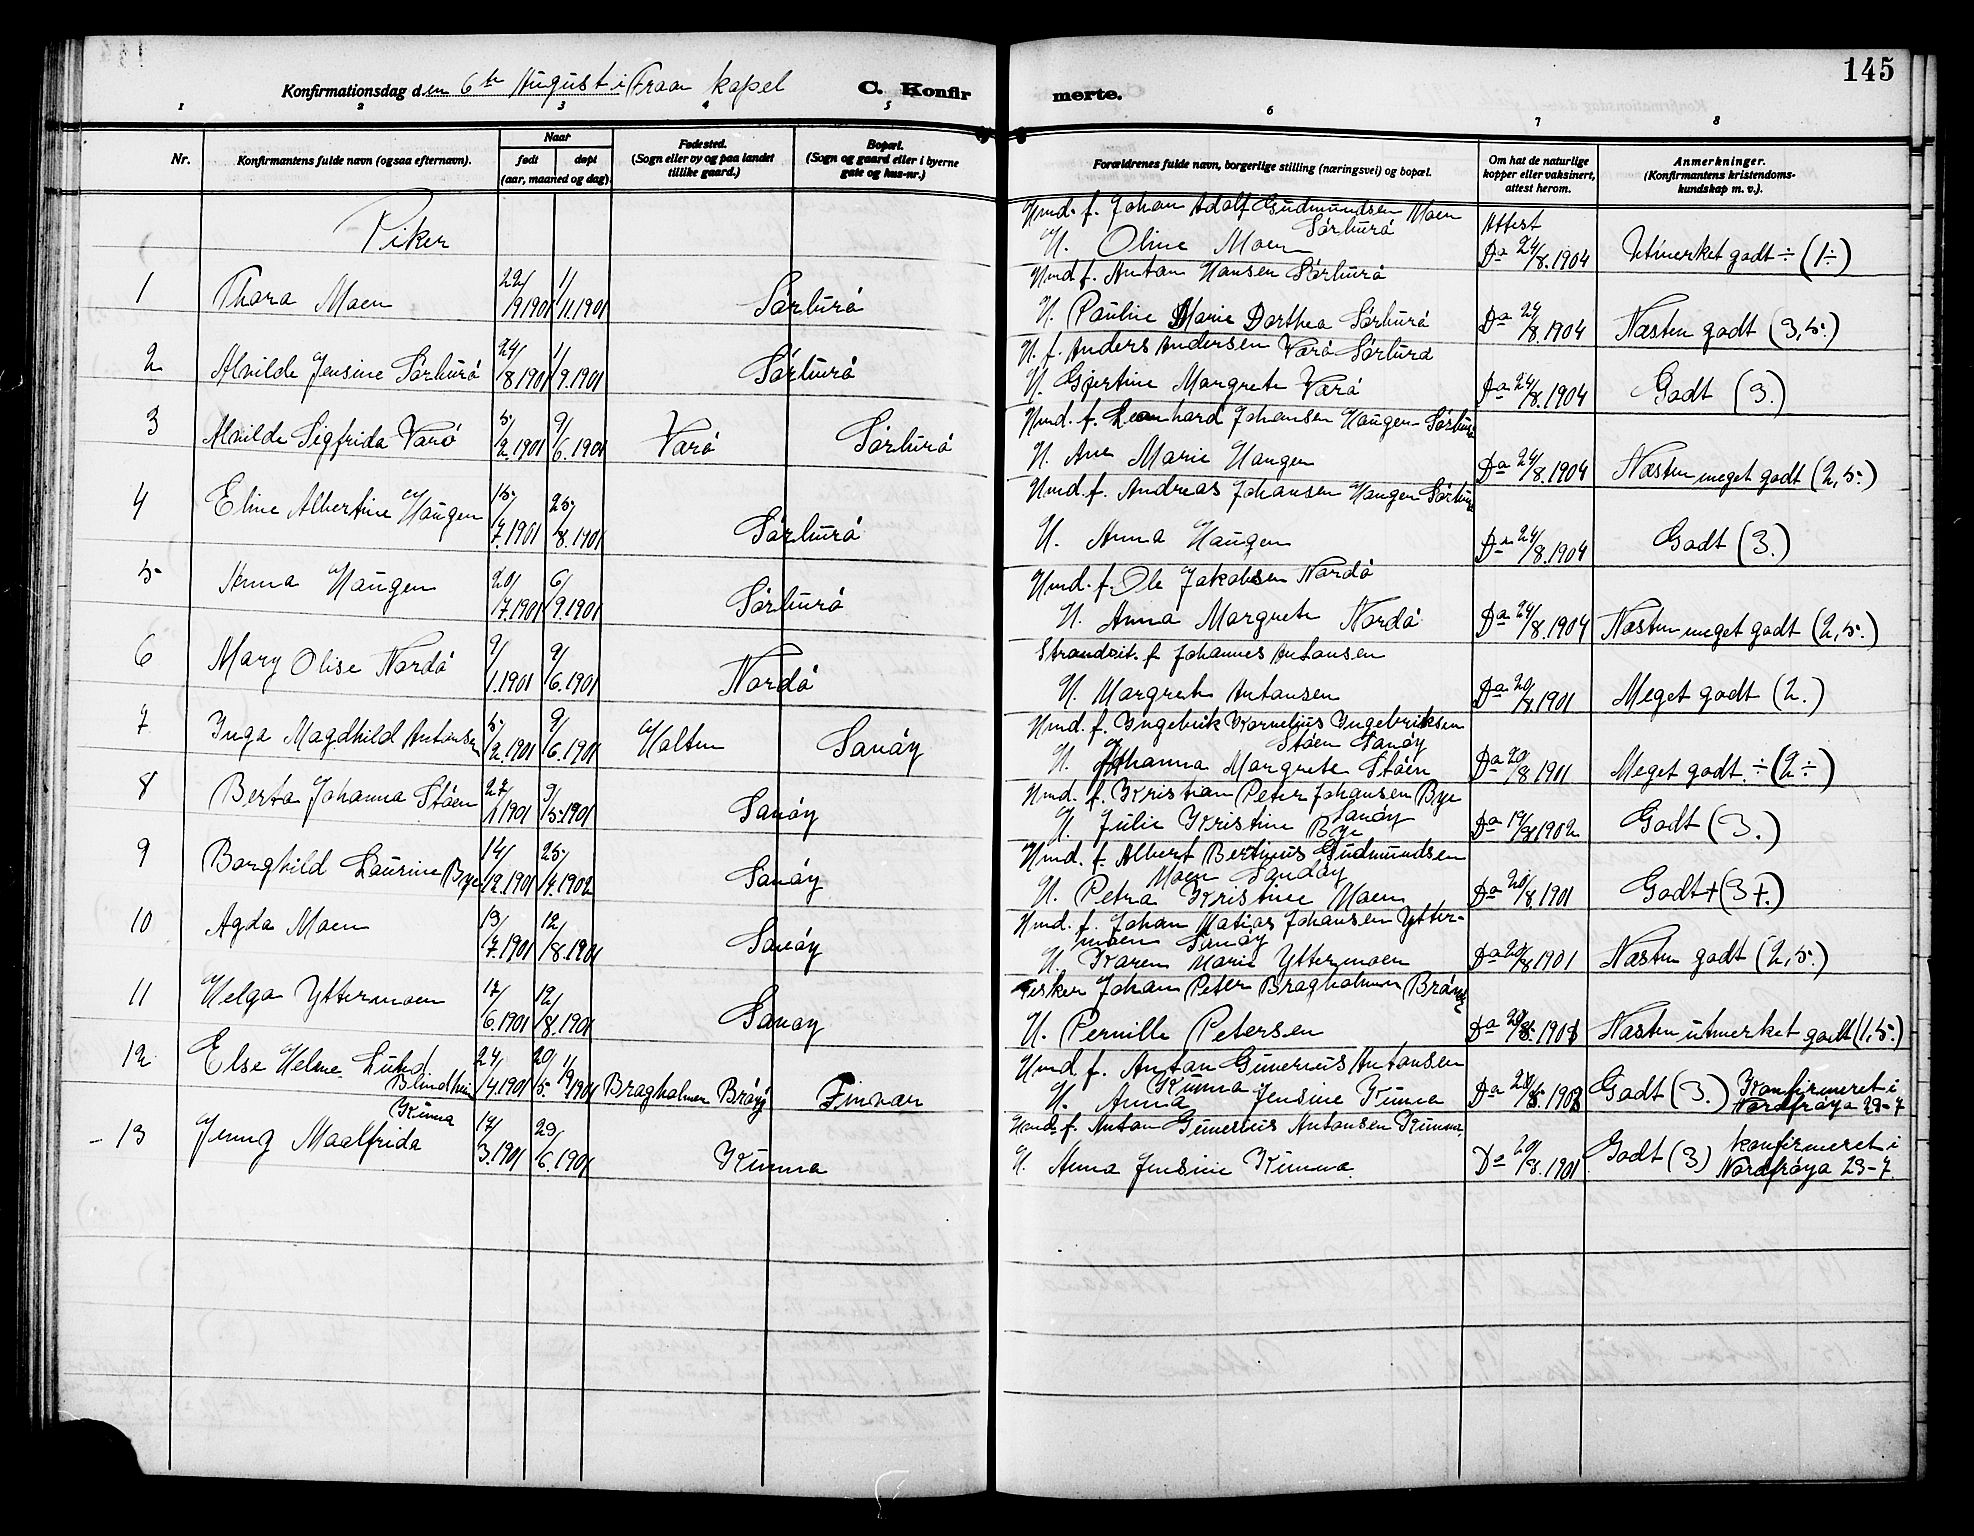 145
Konfirmationsdag den 6te August i kapel
C. Konfirmerte.
1 2 3 4 5 6 7 8
Nr.
Konfirmantens fulde navn (ogsaa efternavn).
Naar
født
døpt
(aar, maaned og dag).
Fødested.
(Sogn eller by og paa landet
tillike gaard.)
Bopæl.
(Sogn og gaard eller i byerne
gate og hus-nr.)
Forældrenes fulde navn, borgerlige stilling (næringsvei) og bopæl.
Om hat de naturlige
kopper eller vaksinert,
attest herom.
Anmerkninger.
(Konfirmantens kristendoms-
kundskap m. v.).
Piker
1 Thora Moen 22/9 1901 1/11.1901 Sørburö
Hmd. f. Johan Adolf Gudmundsen Moen
Sörburö
H. Oline Moen
Attest
Da 24/8.1904 Utmerket godt ÷ (1÷)
2 Alvilde Jensine Sörburö 24/8 1901 1/9.1901 Sörburö
Hmd f. Anton Hansen Sörburö
H. Pauline Marie Dorthea Sörburö Da 24/8.1904 Næsten godt (3,5.)
3 Alvilde Sigfrida Varö 5/2.1901 9/6.1901 Varö Sörburö
H. f. Anders Andersen Varö Sörburö
H. Gjertine Margrete Varö Da 24/8.1904 Godt (3.)
4 Eline Albertine Haugen 15/7.1901 25/8.1901 Sörburö
Hmd. f. Leonhard Johansen Haugen Sörburö
H. Ane Marie Haugen Da 24/8.1904 Næsten meget godt (2,5.)
5 Anna Haugen 20/7.1901 6/9.1901 Sörburö
Hmd. f. Andreas Johansen Haugen Sörburö
H. Anna Haugen Da 24/8.1904 Godt (3.)
6 Mary Olise Nordö 9/1.1901 9/6.1901 Nordö
Hmd. f. Ole Jakobsen Nordö
H. Anna Margrete Nordö Da 24/8.1904 Næsten meget godt (2,5.)
7 Inga Magdhild Antonsen 5/2.1901 9/6.1901 Holten Sanöy
Strandsit. f. Johannes Antonsen
H. Margrete Antonsen Da 20/8.1901 Meget godt (2.)
8 Berta Johanna Stöen 27/1 1901 9/5.1901 Sanöy
Hmd. f. Ingebrik Kornelius Ingebriksen
Stöen Sanöy
H. Johanna Margrete Stöen Da 20/8.1911 Meget godt ÷ (2÷)
9 Borghild Laurine Bye 14/12.1901 25/4.1902 Sanöy
Hmd. f. Kristian Peter Johansen Bye
Sanöy
H. Julie Kristine Bye Da 19/8 1902 Godt (3.)
10 Agda Moen 13/7.1901 12/8.1901 Sanöy
Hmd. f. Albert Bertinus Gudmundsen
Moen Sandöy
H. Petra Kristine Moen Da 20/8.1901 Godt+(3+.)
11 Helga Yttermoen 17/6.1901 12/8.1901 Sanöy
Hmd. f. Johan Matias Johansen Ytter-
moen Sanöy
H. Karen Marie Yttermoen Da 20/8.1901 Næsten godt (2,5.)
12 Else Helene Lund
Blindheim 24/4.1901 Bragholmen Finvær
Fisker Johan Peter Bragholmen
H. Pernille Petersen Næsten utmerket godt (1,5.)
Hmd. f. Anton Gunerius Antonsen
Kunna
H. Anna Jensine Kunna Godt (3.) Konfirmeret i
Nordfröya 29-7
– 13 Jenny Maalfrida
Kunna 17/3.1901 29/6.1901 Kunna
Hmd. f. Anton Gunerius Antonsen Kunna
H. Anna Jensine Kunna Da 20/8.1901 Godt (3) konfirmeret i
Nordfröya 29-7